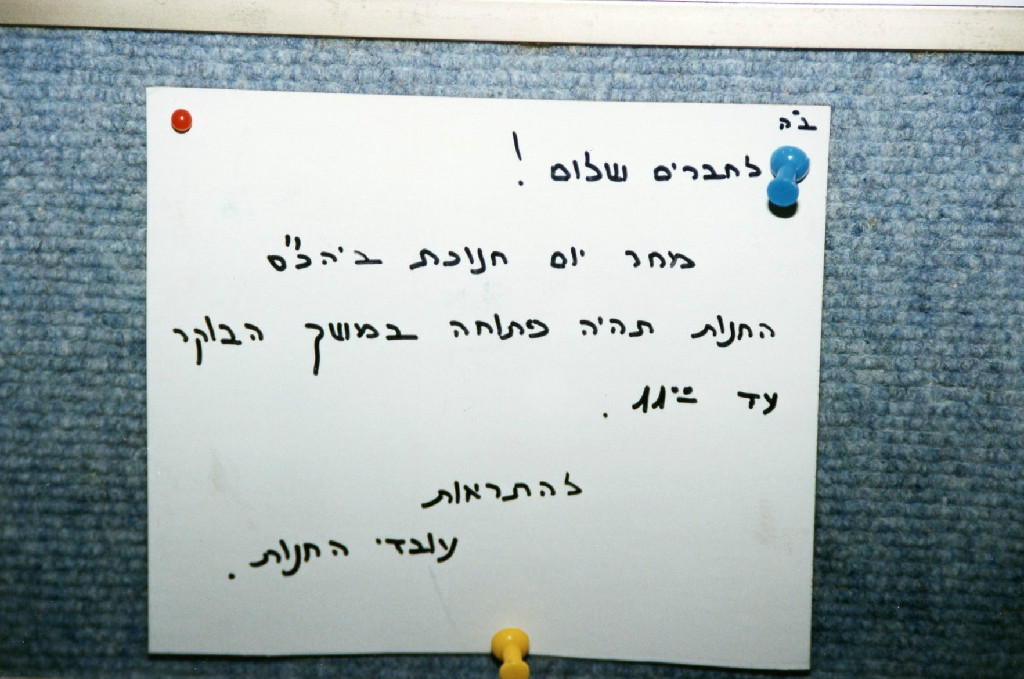 ב"ה
לחברים שלום!
מחר יום חנוכת ביהכ"ס
החנות תהיה פתוחה במשך הבוקר
עד 11:00.
להתראות
עובדי החנות.